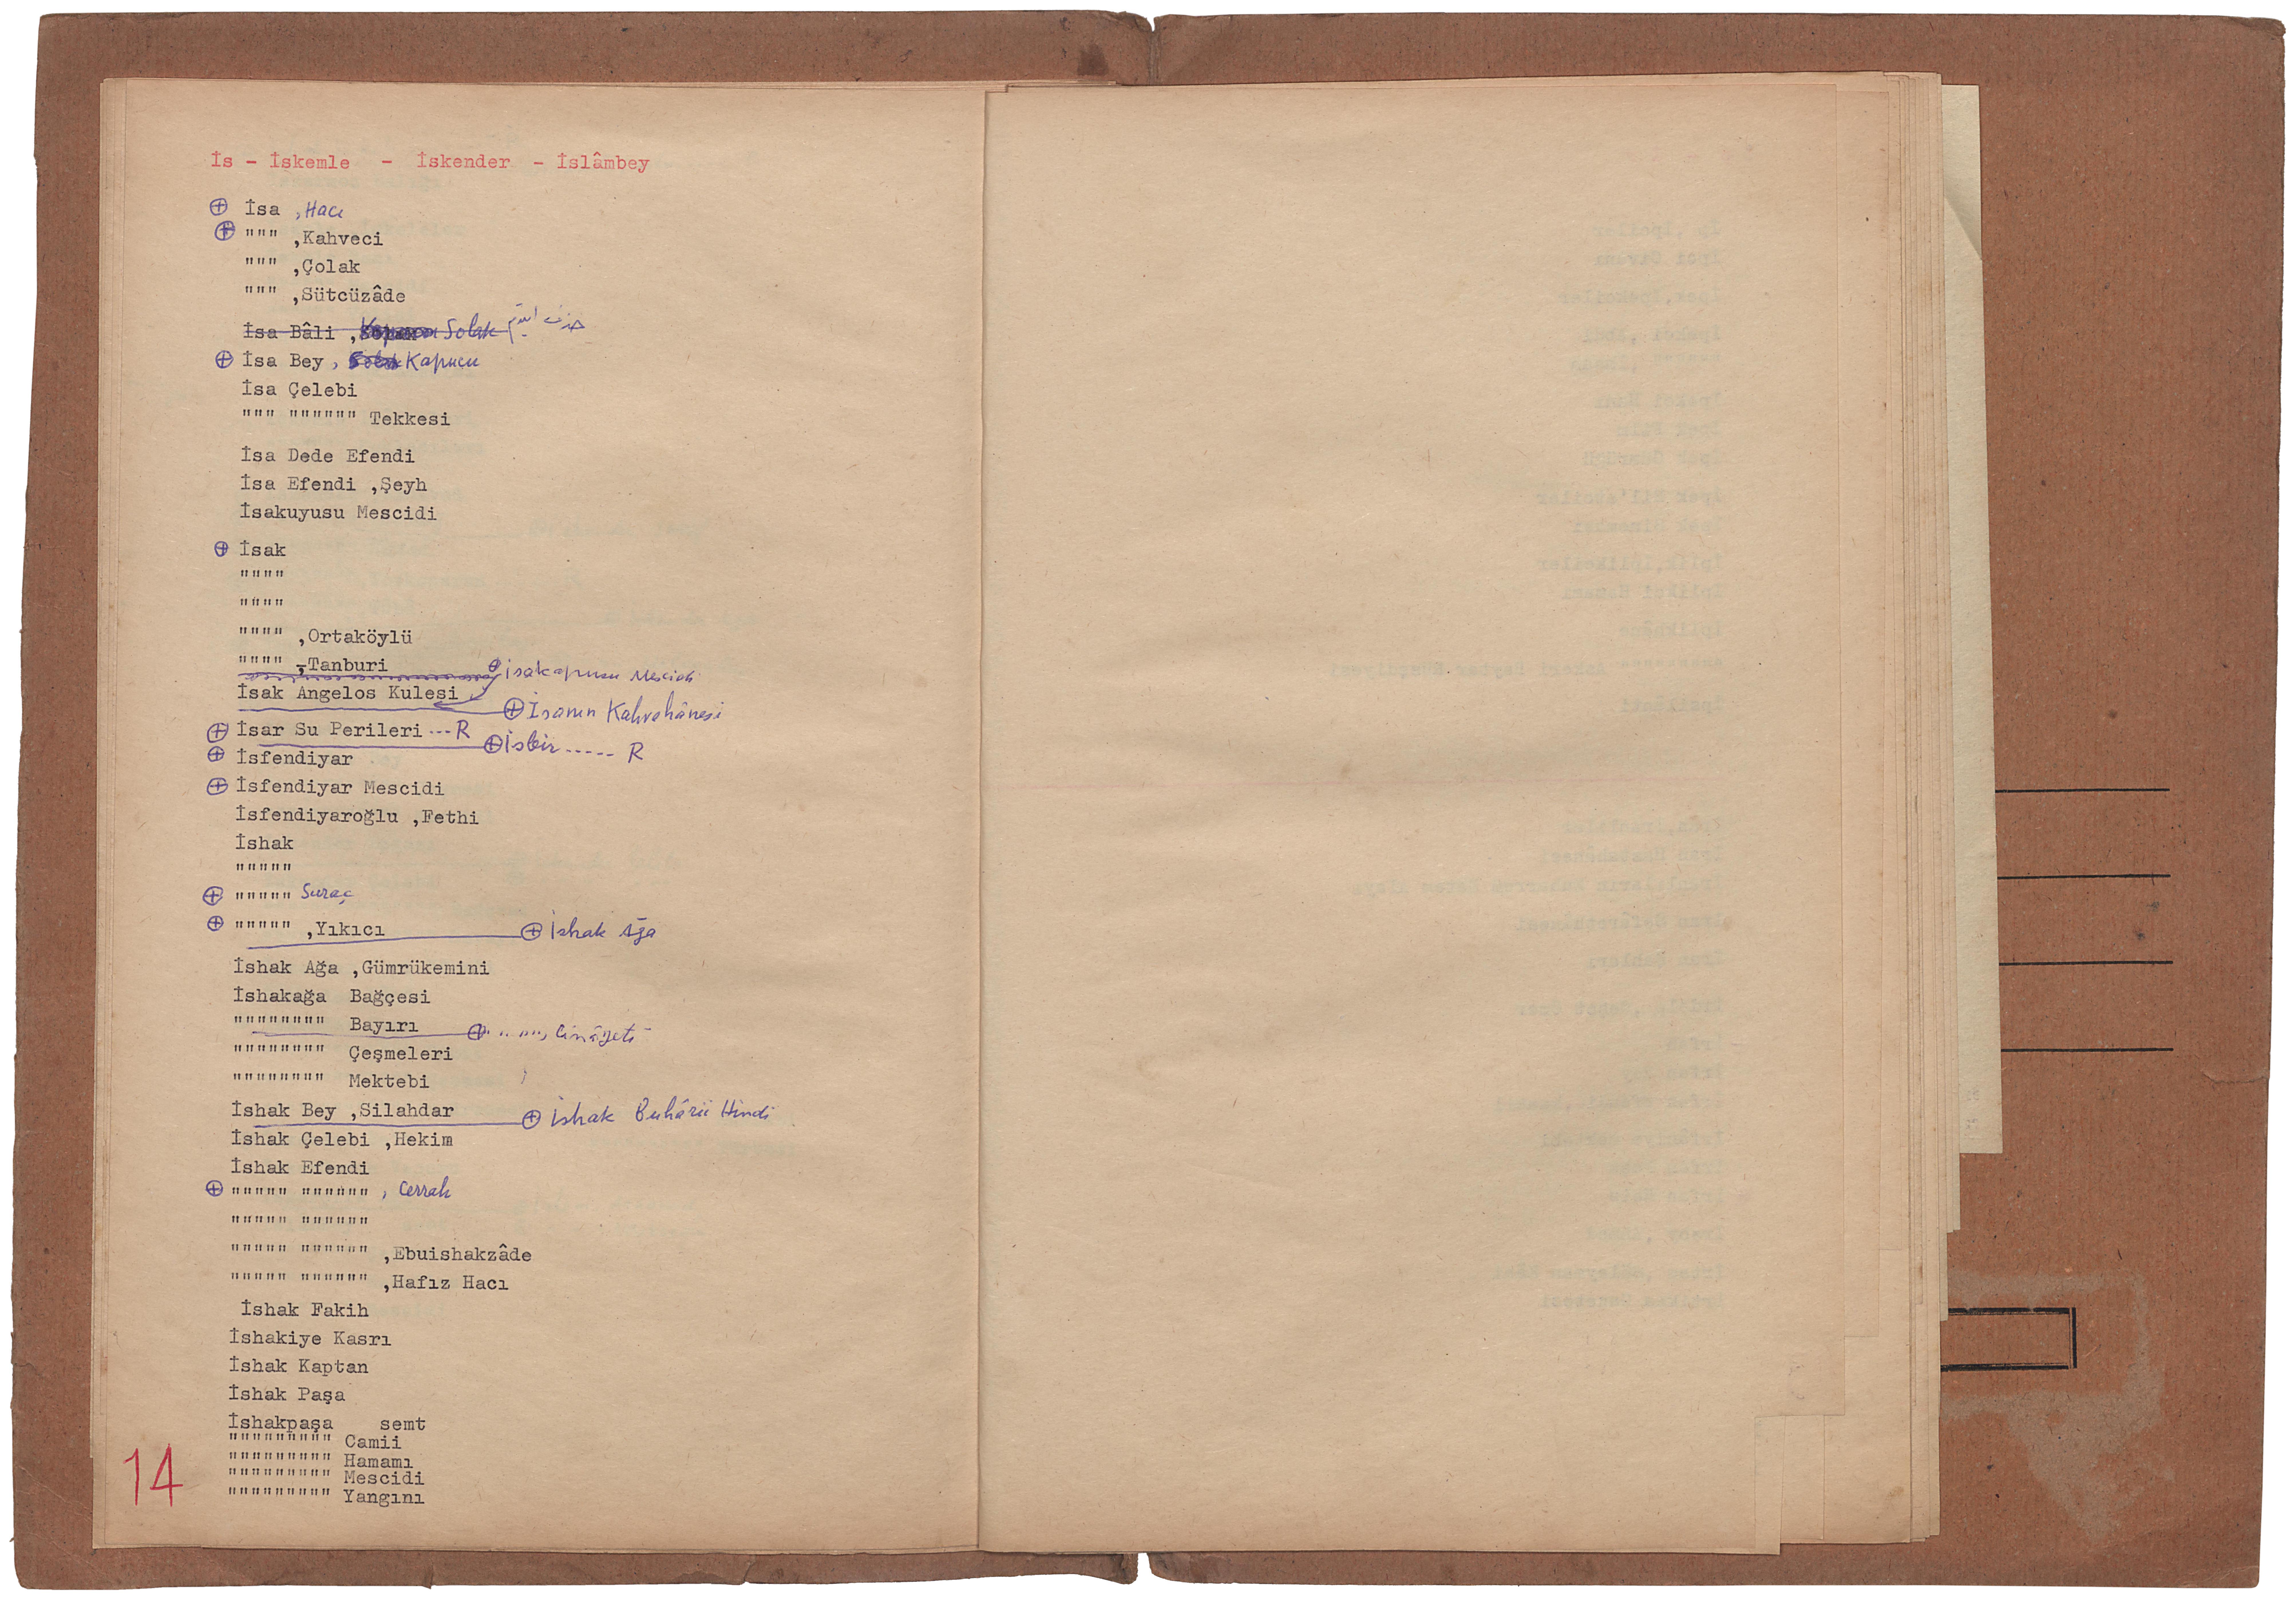 İs - İskemle - İskender - İslâmbey
⊕ İsa , Hacı
⊕ """ ,Kahveci
""" ,Çolak
""" ,Sütcüzâde
İsa Bâli , Solak
⊕ İsa Bey , Kapucu
İsa Çelebi
""" """""" Tekkesi
İsa Dede Efendi
İsa Efendi ,Şeyh
İsakuyusu Mescidi
⊕ İsak
""""
""""
"""" ,Ortaköylü
"""" ,Tanburi
⊕ İsakapusu Mescidi
İsak Angelos Kulesi
⊕ İsanın Kahvehânesi
⊕ İsar Su Perileri ... R
⊕ İsbir ..... R
⊕ İsfendiyar
⊕ İsfendiyar Mescidi
İsfendiyaroğlu ,Fethi
İshak
"""""
⊕ """"" Suraç
⊕ """"" ,Yıkıcı
⊕ İshak Ağa
İshak Ağa ,Gümrükemini
İshakağa Bağçesi
"""""""" Bayırı
⊕ " " "", Cinâyeti
"""""""" Çeşmeleri
"""""""" Mektebi
İshak Bey ,Silahdar
⊕ İshak Buhârii Hindi
İshak Çelebi ,Hekim
İshak Efendi
⊕ """"" """""" , Cerrah
""""" """"""
""""" """""" ,Ebuishakzâde
""""" """""" ,Hafız Hacı
İshak Fakih
İshakiye Kasrı
İshak Kaptan
İshak Paşa
İshakpaşa semt
""""""""" Camii
""""""""" Hamamı
""""""""" Mescidi
""""""""" Yangını
14